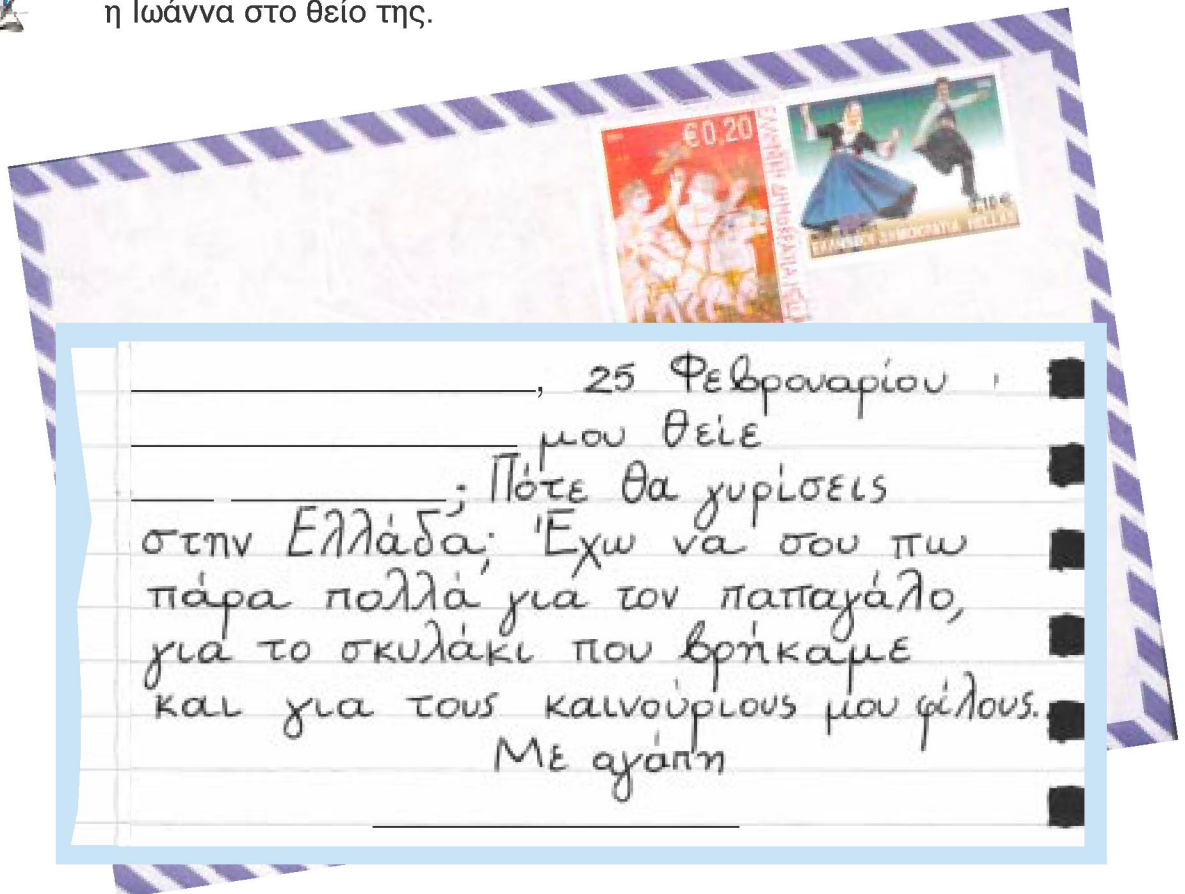 η Ιωάννα στο θείο της.
€0,20
ΕΛΛΗΝΙΚΗ ΔΗΜΟΚΡΑΤΙΑ
ΕΛΛΗΝΙΚΗ ΔΗΜΟΚΡΑΤΙΑ HELLAS
, 25 Φεβρουαρίου
μου θείε
; Πότε θα γυρίσεις
στην Ελλάδα; Έχω να σου πω
πάρα πολλά για τον παπαγάλο,
για το σκυλάκι που βρήκαμε
και για τους καινούριους μου φίλους.
Με αγάπη